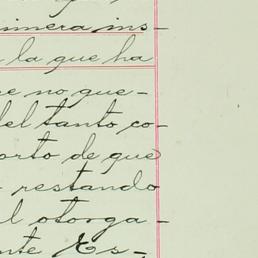 imera ins-
la que ha
e no que-
del tanto co-
orto de que
restando
l otorga-
nte Es-